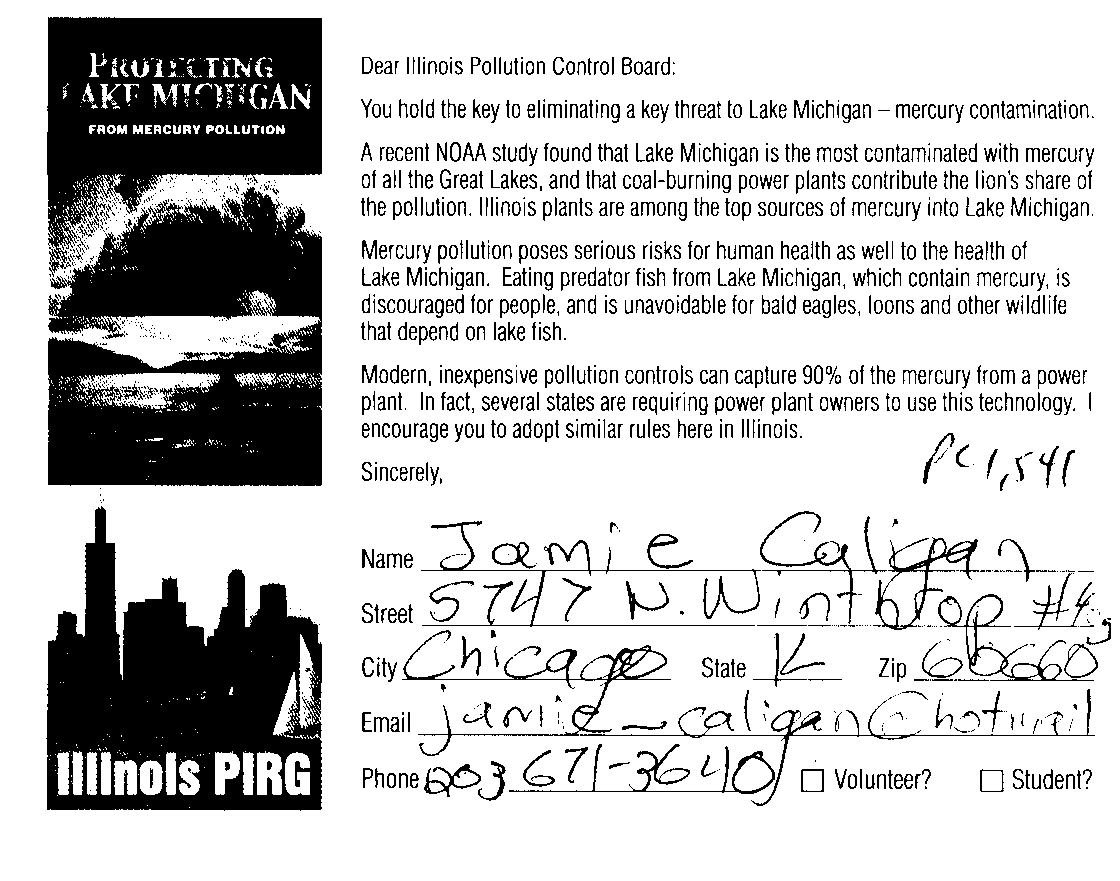 PROTECTING
LAKE MICHIGAN
FROM MERCURY POLLUTION
Illinois PIRG
Dear Illinois Pollution Control Board:
You hold the key to eliminating a key threat to Lake Michigan – mercury contamination.
A recent NOAA study found that Lake Michigan is the most contaminated with mercury
of all the Great Lakes, and that coal-burning power plants contribute the lion's share of
the pollution. Illinois plants are among the top sources of mercury into Lake Michigan.
Mercury pollution poses serious risks for human health as well to the health of
Lake Michigan. Eating predator fish from Lake Michigan, which contain mercury, is
discouraged for people, and is unavoidable for bald eagles, loons and other wildlife
that depend on lake fish.
Modern, inexpensive pollution controls can capture 90% of the mercury from a power
plant. In fact, several states are requiring power plant owners to use this technology. I
encourage you to adopt similar rules here in Illinois.
Sincerely,
PC 1,541
Name Jamie Caligan
Street 5747 N. Winthrop
City Chicago State IL Zip 60660
Email jamie_caligan@hotmail
Phone 203 671-3640 Volunteer? Student?